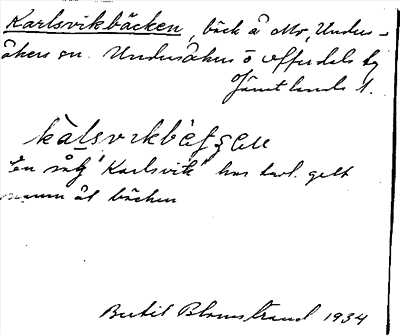 Karlsvikbäcken, bäck å Mo, Unders-
åkers sn. Undersåkers o Offerdals tg
Jämtlands l.
En sålg "Karlsvik" har trol. gett
namn åt bäcken
Bertil Blomstrand 1934